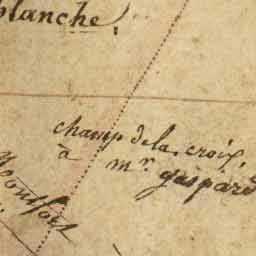 blanche,
champ de la croix,
à mr. gaspard
Montfort